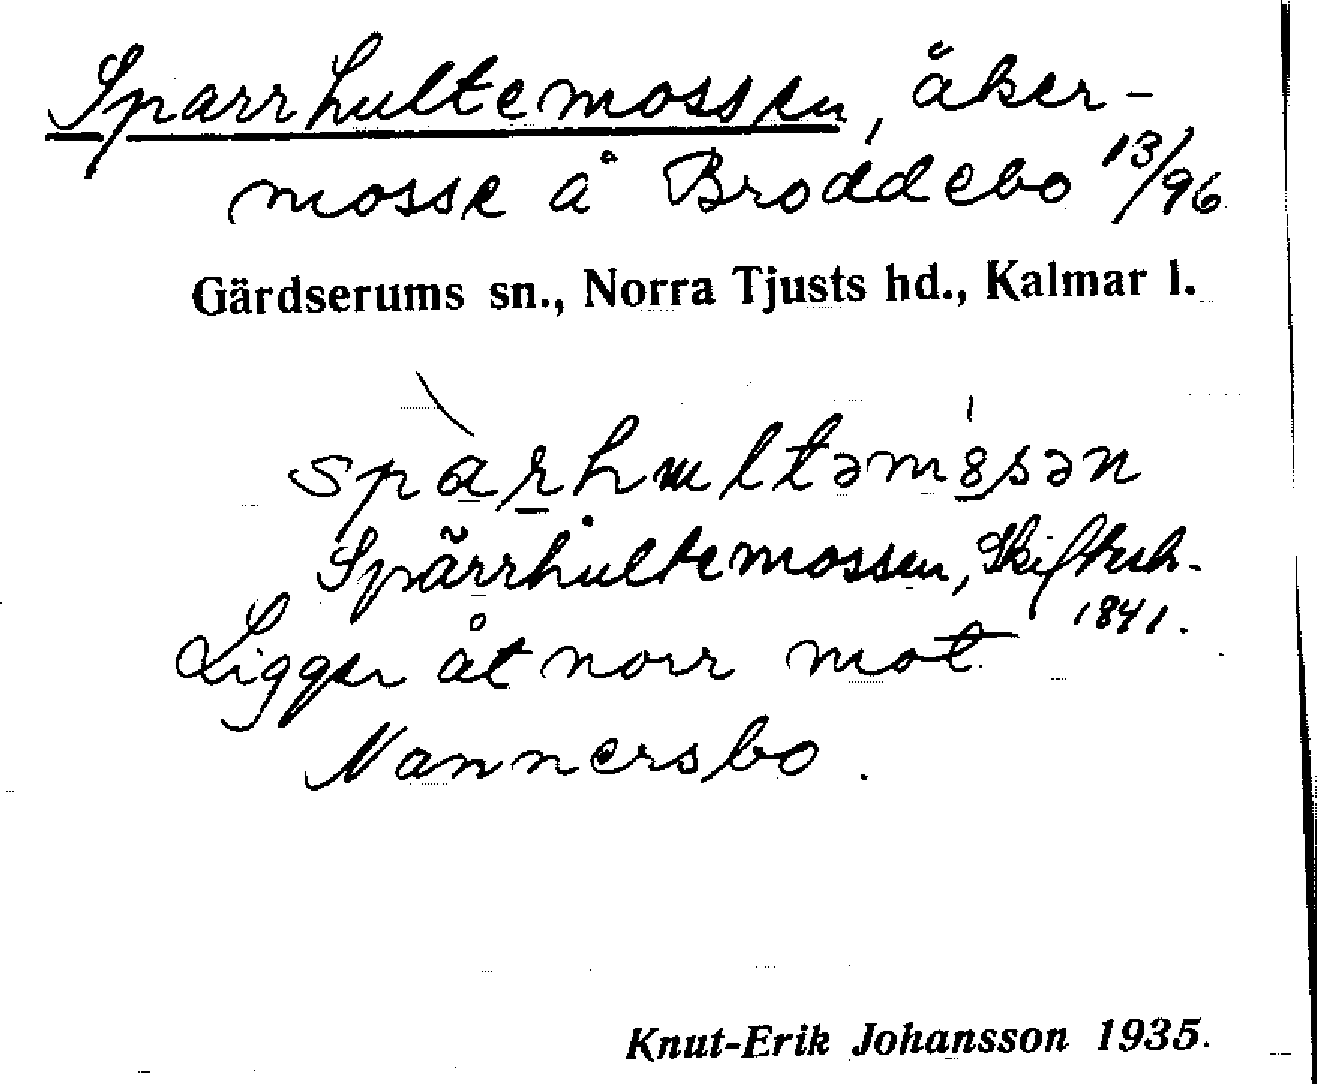 Sparrhultemossen, åker-
mosse å Broddebo 13/96
Gärdserums sn., Norra Tjusts hd., Kalmar l.
sparhultəm8sən
Spårrhultemossen, Skifteh.
1841.
Ligger åt norr mot
Nannersbo.
Knut-Erik Johansson 1935.